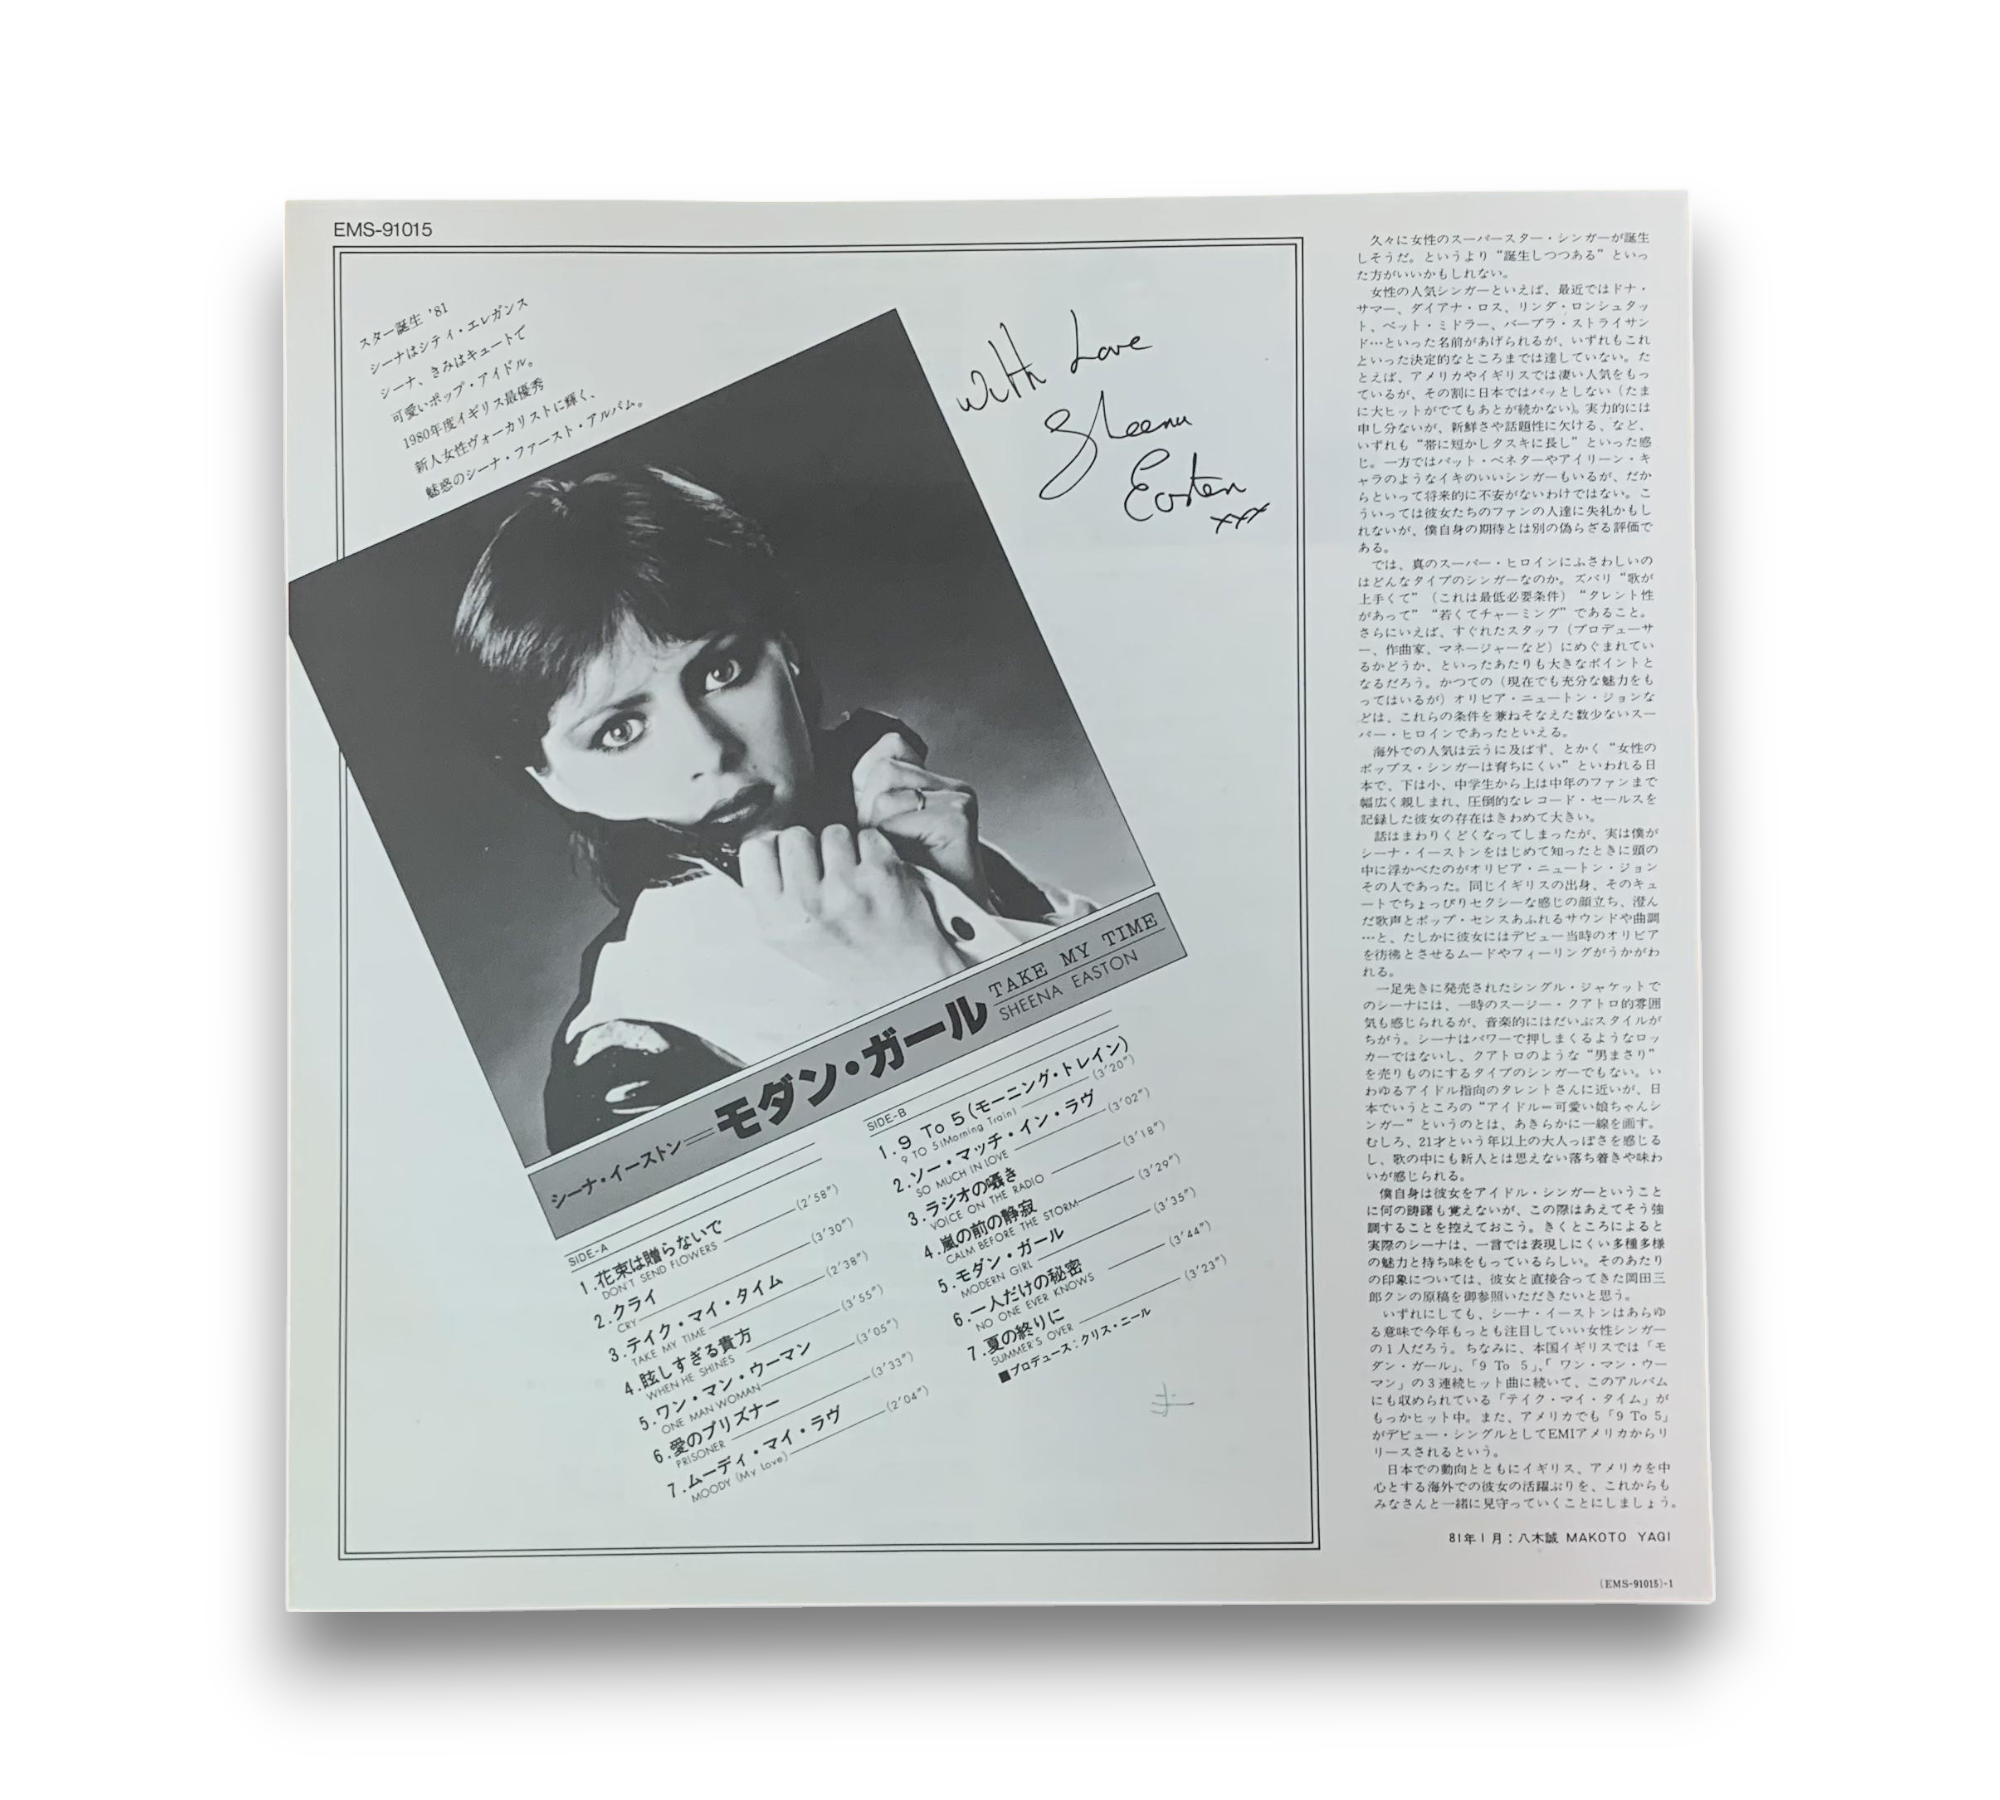 EMS-91015
スター誕生 '81
シーナはシティ・エレガンス
シーナ、きみはキュートで
可愛いポップ・アイドル。
1980年度イギリス最優秀
新人女性ヴォーカリストに輝く、
魅惑のシーナ・ファースト・アルバム。
With Love
Sheena
Easton
xxx
シーナ・イーストン＝モダン・ガール
TAKE MY TIME
SHEENA EASTON
SIDE-A
1.花束は贈らないで
DON'T SEND FLOWERS (2'58")
2.クライ
CRY (3'30")
3.テイク・マイ・タイム
TAKE MY TIME (2'38")
4.眩しすぎる貴方
WHEN HE SHINES (3'55")
5.ワン・マン・ウーマン
ONE MAN WOMAN (3'05")
6.愛のプリズナー
PRISONER (3'33")
7.ムーディ・マイ・ラヴ
MOODY (My Love) (2'04")
SIDE-B
1.9 To 5(モーニング・トレイン)
9 TO 5(Morning Train) (3'20")
2.ソー・マッチ・イン・ラヴ
SO MUCH IN LOVE (3'02")
3.ラジオの囁き
VOICE ON THE RADIO (3'18")
4.嵐の前の静寂
CALM BEFORE THE STORM (3'29")
5.モダン・ガール
MODERN GIRL (3'35")
6.一人だけの秘密
NO ONE EVER KNOWS (3'44")
7.夏の終りに
SUMMER'S OVER (3'23")
■プロデュース：クリス・ニール
久々に女性のスーパースター・シンガーが誕生
しそうだ。というより“誕生しつつある”といっ
た方がいいかもしれない。
女性の人気シンガーといえば、最近ではドナ・
サマー、ダイアナ・ロス、リンダ・ロンシュタッ
ト、ベット・ミドラー、バーブラ・ストライサン
ド…といった名前があげられるが、いずれもこれ
といった決定的なところまでは達していない。た
とえば、アメリカやイギリスでは凄い人気をもっ
ているが、その割に日本ではパッとしない（たま
に大ヒットがでてもあとが続かない）。実力的には
申し分ないが、新鮮さや話題性に欠ける、など、
いずれも“帯に短かしタスキに長し”といった感
じ。一方ではパット・ベネターやアイリーン・キ
ャラのようなイキのいいシンガーもいるが、だか
らといって将来的に不安がないわけではない。こ
ういっては彼女たちのファンの人達に失礼かもし
れないが、僕自身の期待とは別の偽らざる評価で
ある。
では、真のスーパー・ヒロインにふさわしいの
はどんなタイプのシンガーなのか。ズバリ“歌が
上手くて”（これは最低必要条件）“タレント性
があって”“若くてチャーミング”であること。
さらにいえば、すぐれたスタッフ（プロデューサ
ー、作曲家、マネージャーなど）にめぐまれてい
るかどうか、といったあたりも大きなポイントと
なるだろう。かつての（現在でも充分な魅力をも
ってはいるが）オリビア・ニュートン・ジョンな
どは、これらの条件を兼ねそなえた数少ないスー
パー・ヒロインであったといえる。
海外での人気は云うに及ばず、とかく“女性の
ポップス・シンガーは育ちにくい”といわれる日
本で、下は小、中学生から上は中年のファンまで
幅広く親しまれ、圧倒的なレコード・セールスを
記録した彼女の存在はきわめて大きい。
話はまわりくどくなってしまったが、実は僕が
シーナ・イーストンをはじめて知ったときに頭の
中に浮かべたのがオリビア・ニュートン・ジョン
その人であった。同じイギリスの出身、そのキュ
ートでちょっぴりセクシーな感じの顔立ち、澄ん
だ歌声とポップ・センスあふれるサウンドや曲調
…と、たしかに彼女にはデビュー当時のオリビア
を彷彿とさせるムードやフィーリングがうかがわ
れる。
一足先きに発売されたシングル・ジャケットで
のシーナには、一時のスージー・クアトロ的雰囲
気も感じられるが、音楽的にはだいぶスタイルが
ちがう。シーナはパワーで押しまくるようなロッ
カーではないし、クアトロのような“男まさり”
を売りものにするタイプのシンガーでもない。い
わゆるアイドル指向のタレントさんに近いが、日
本でいうところの“アイドル＝可愛い娘ちゃんシ
ンガー”というのとは、あきらかに一線を画す。
むしろ、21才という年以上の大人っぽさを感じる
し、歌の中にも新人とは思えない落ち着きや味わ
いが感じられる。
僕自身は彼女をアイドル・シンガーということ
に何の躊躇も覚えないが、この際はあえてそう強
調することを控えておこう。きくところによると
実際のシーナは、一言では表現しにくい多種多様
の魅力と持ち味をもっているらしい。そのあたり
の印象については、彼女と直接合ってきた岡田三
郎クンの原稿を御参照いただきたいと思う。
いずれにしても、シーナ・イーストンはあらゆ
る意味で今年もっとも注目していい女性シンガー
の1人だろう。ちなみに、本国イギリスでは「モ
ダン・ガール」、「9 To 5」、「ワン・マン・ウー
マン」の3連続ヒット曲に続いて、このアルバム
にも収められている「テイク・マイ・タイム」が
もっかヒット中。また、アメリカでも「9 To 5」
がデビュー・シングルとしてEMIアメリカからリ
リースされるという。
日本での動向とともにイギリス、アメリカを中
心とする海外での彼女の活躍ぶりを、これからも
みなさんと一緒に見守っていくことにしましょう。
81年1月：八木誠 MAKOTO YAGI
(EMS-91015)-1